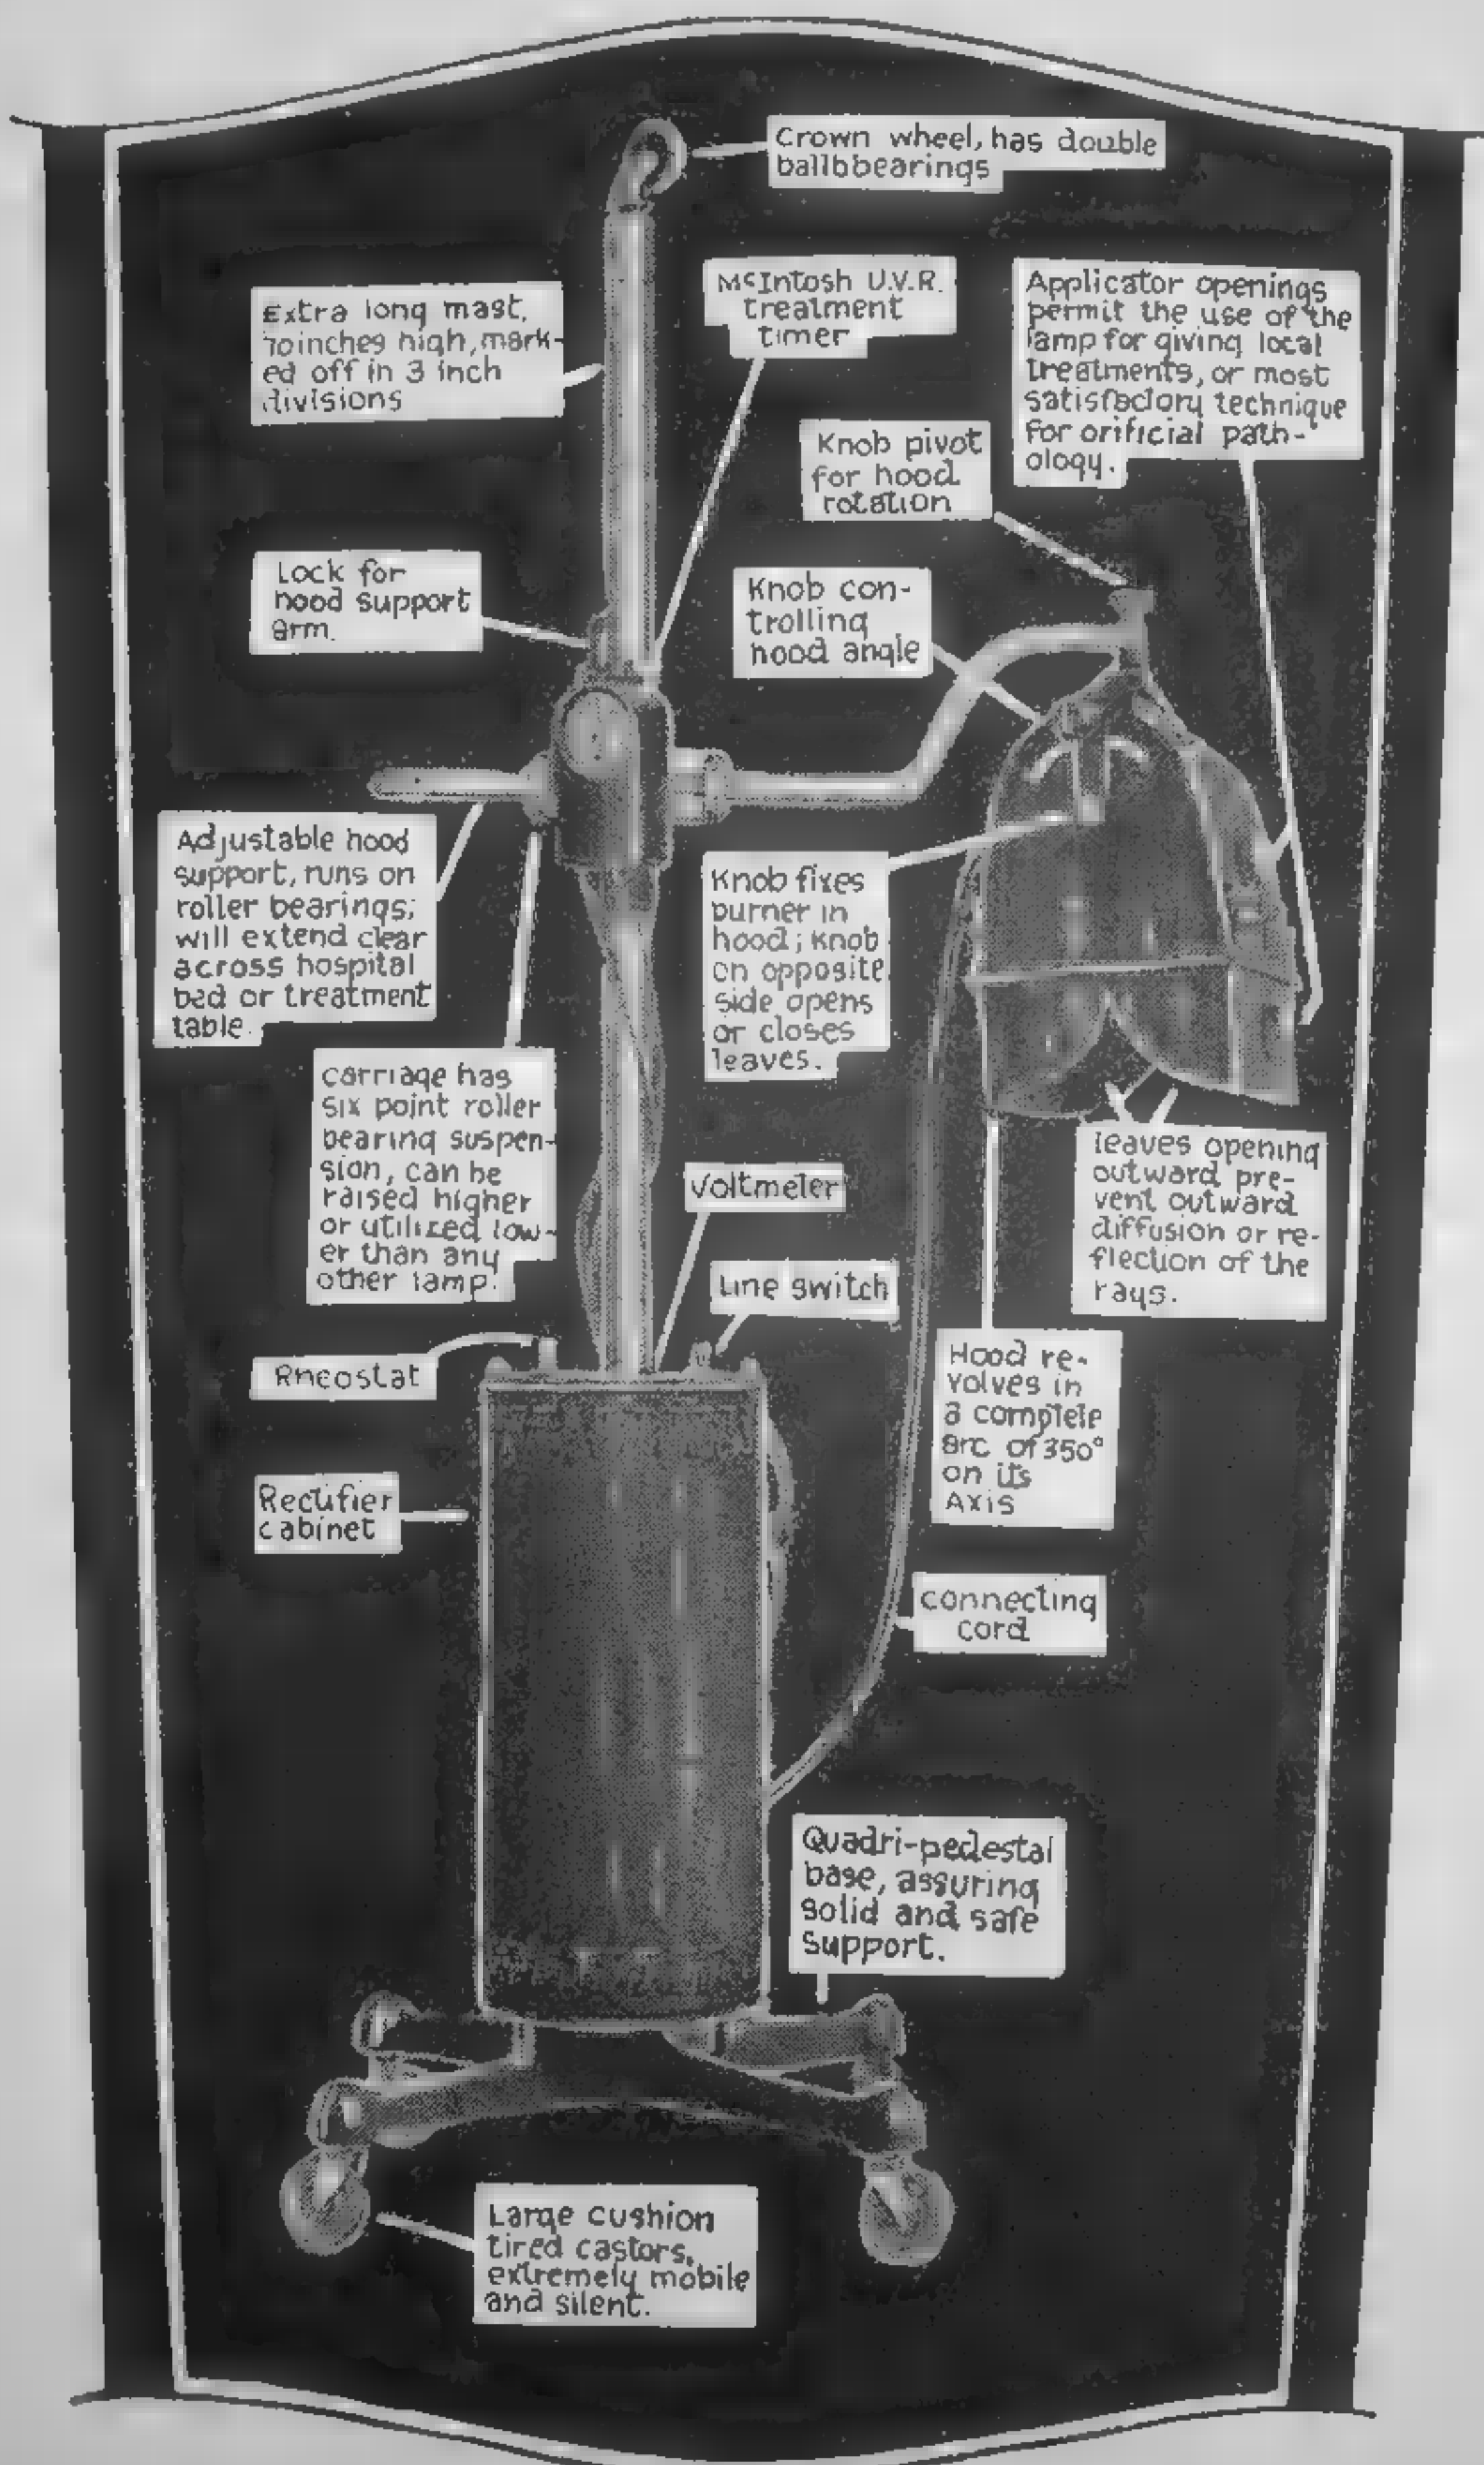 Crown wheel, has double
ballbbearings
McIntosh U.V.R.
treatment
timer
Applicator openings
permit the use of the
lamp for giving local
treatments, or most
satisfactory technique
for orificial path-
ology.
Extra long mast,
70 inches high, mark-
ed off in 3 inch
divisions
Knob pivot
for hood
rotation
Lock for
hood support
arm.
Knob con-
trolling
hood angle
Adjustable hood
support, runs on
roller bearings;
will extend clear
across hospital
bed or treatment
table.
Knob fixes
burner in
hood; knob
on opposite
side opens
or closes
leaves.
carriage has
six point roller
bearing suspen-
sion, can be
raised higher
or utilized low-
er than any
other lamp.
leaves opening
outward pre-
vent outward
diffusion or re-
flection of the
rays.
Voltmeter
Line switch
Rheostat
Hood re-
volves in
a complete
arc of 350°
on its
Axis
Rectifier
cabinet
connecting
cord
Quadri-pedestal
base, assuring
solid and safe
support.
Large cushion
tired castors,
extremely mobile
and silent.